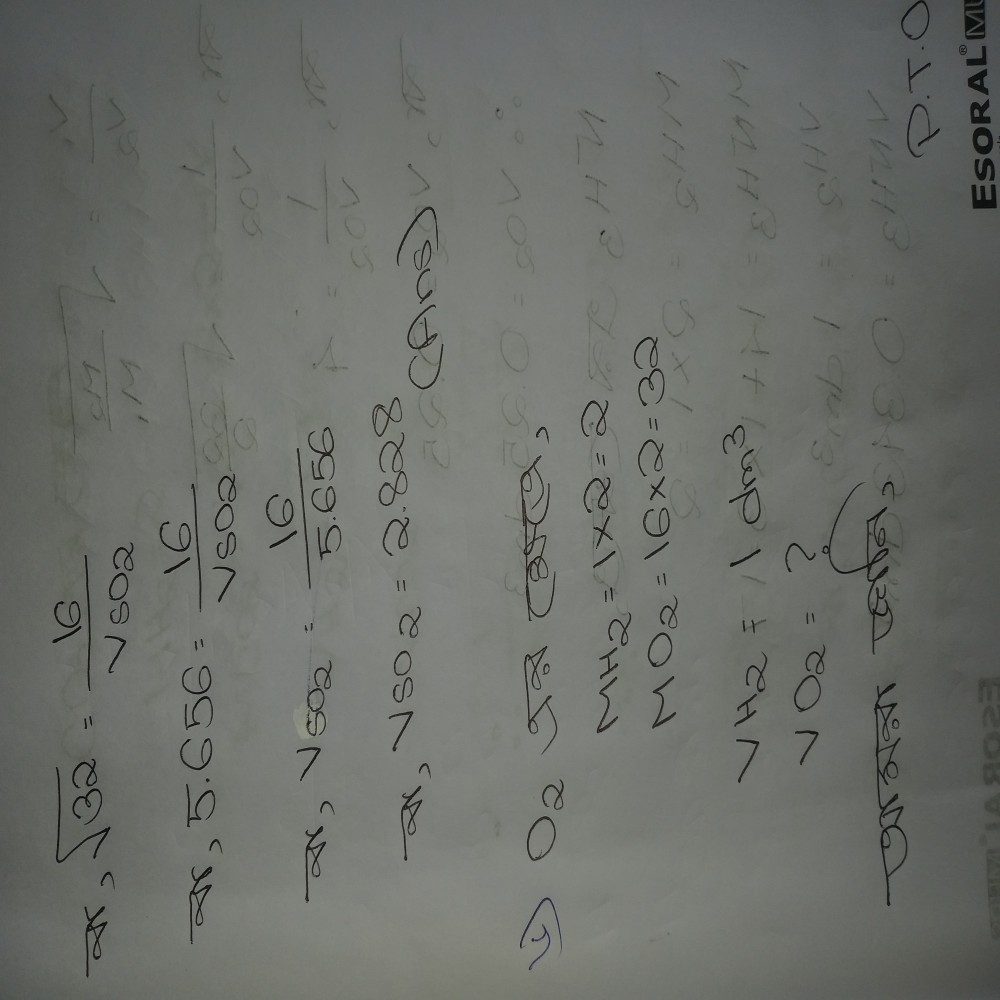 বা, √32 = 16/VSO2
বা, 5.656 = 16/VSO2
বা, VSO2 = 16/5.656
বা, VSO2 = 2.828 (Ans)
O2 এর ক্ষেত্রে,
MH2 = 1×2 = 2
MO2 = 16×2 = 32
VH2 = 1 dm3
VO2 = ?
আমরা জানি,
P.T.O
ESORAL® MU